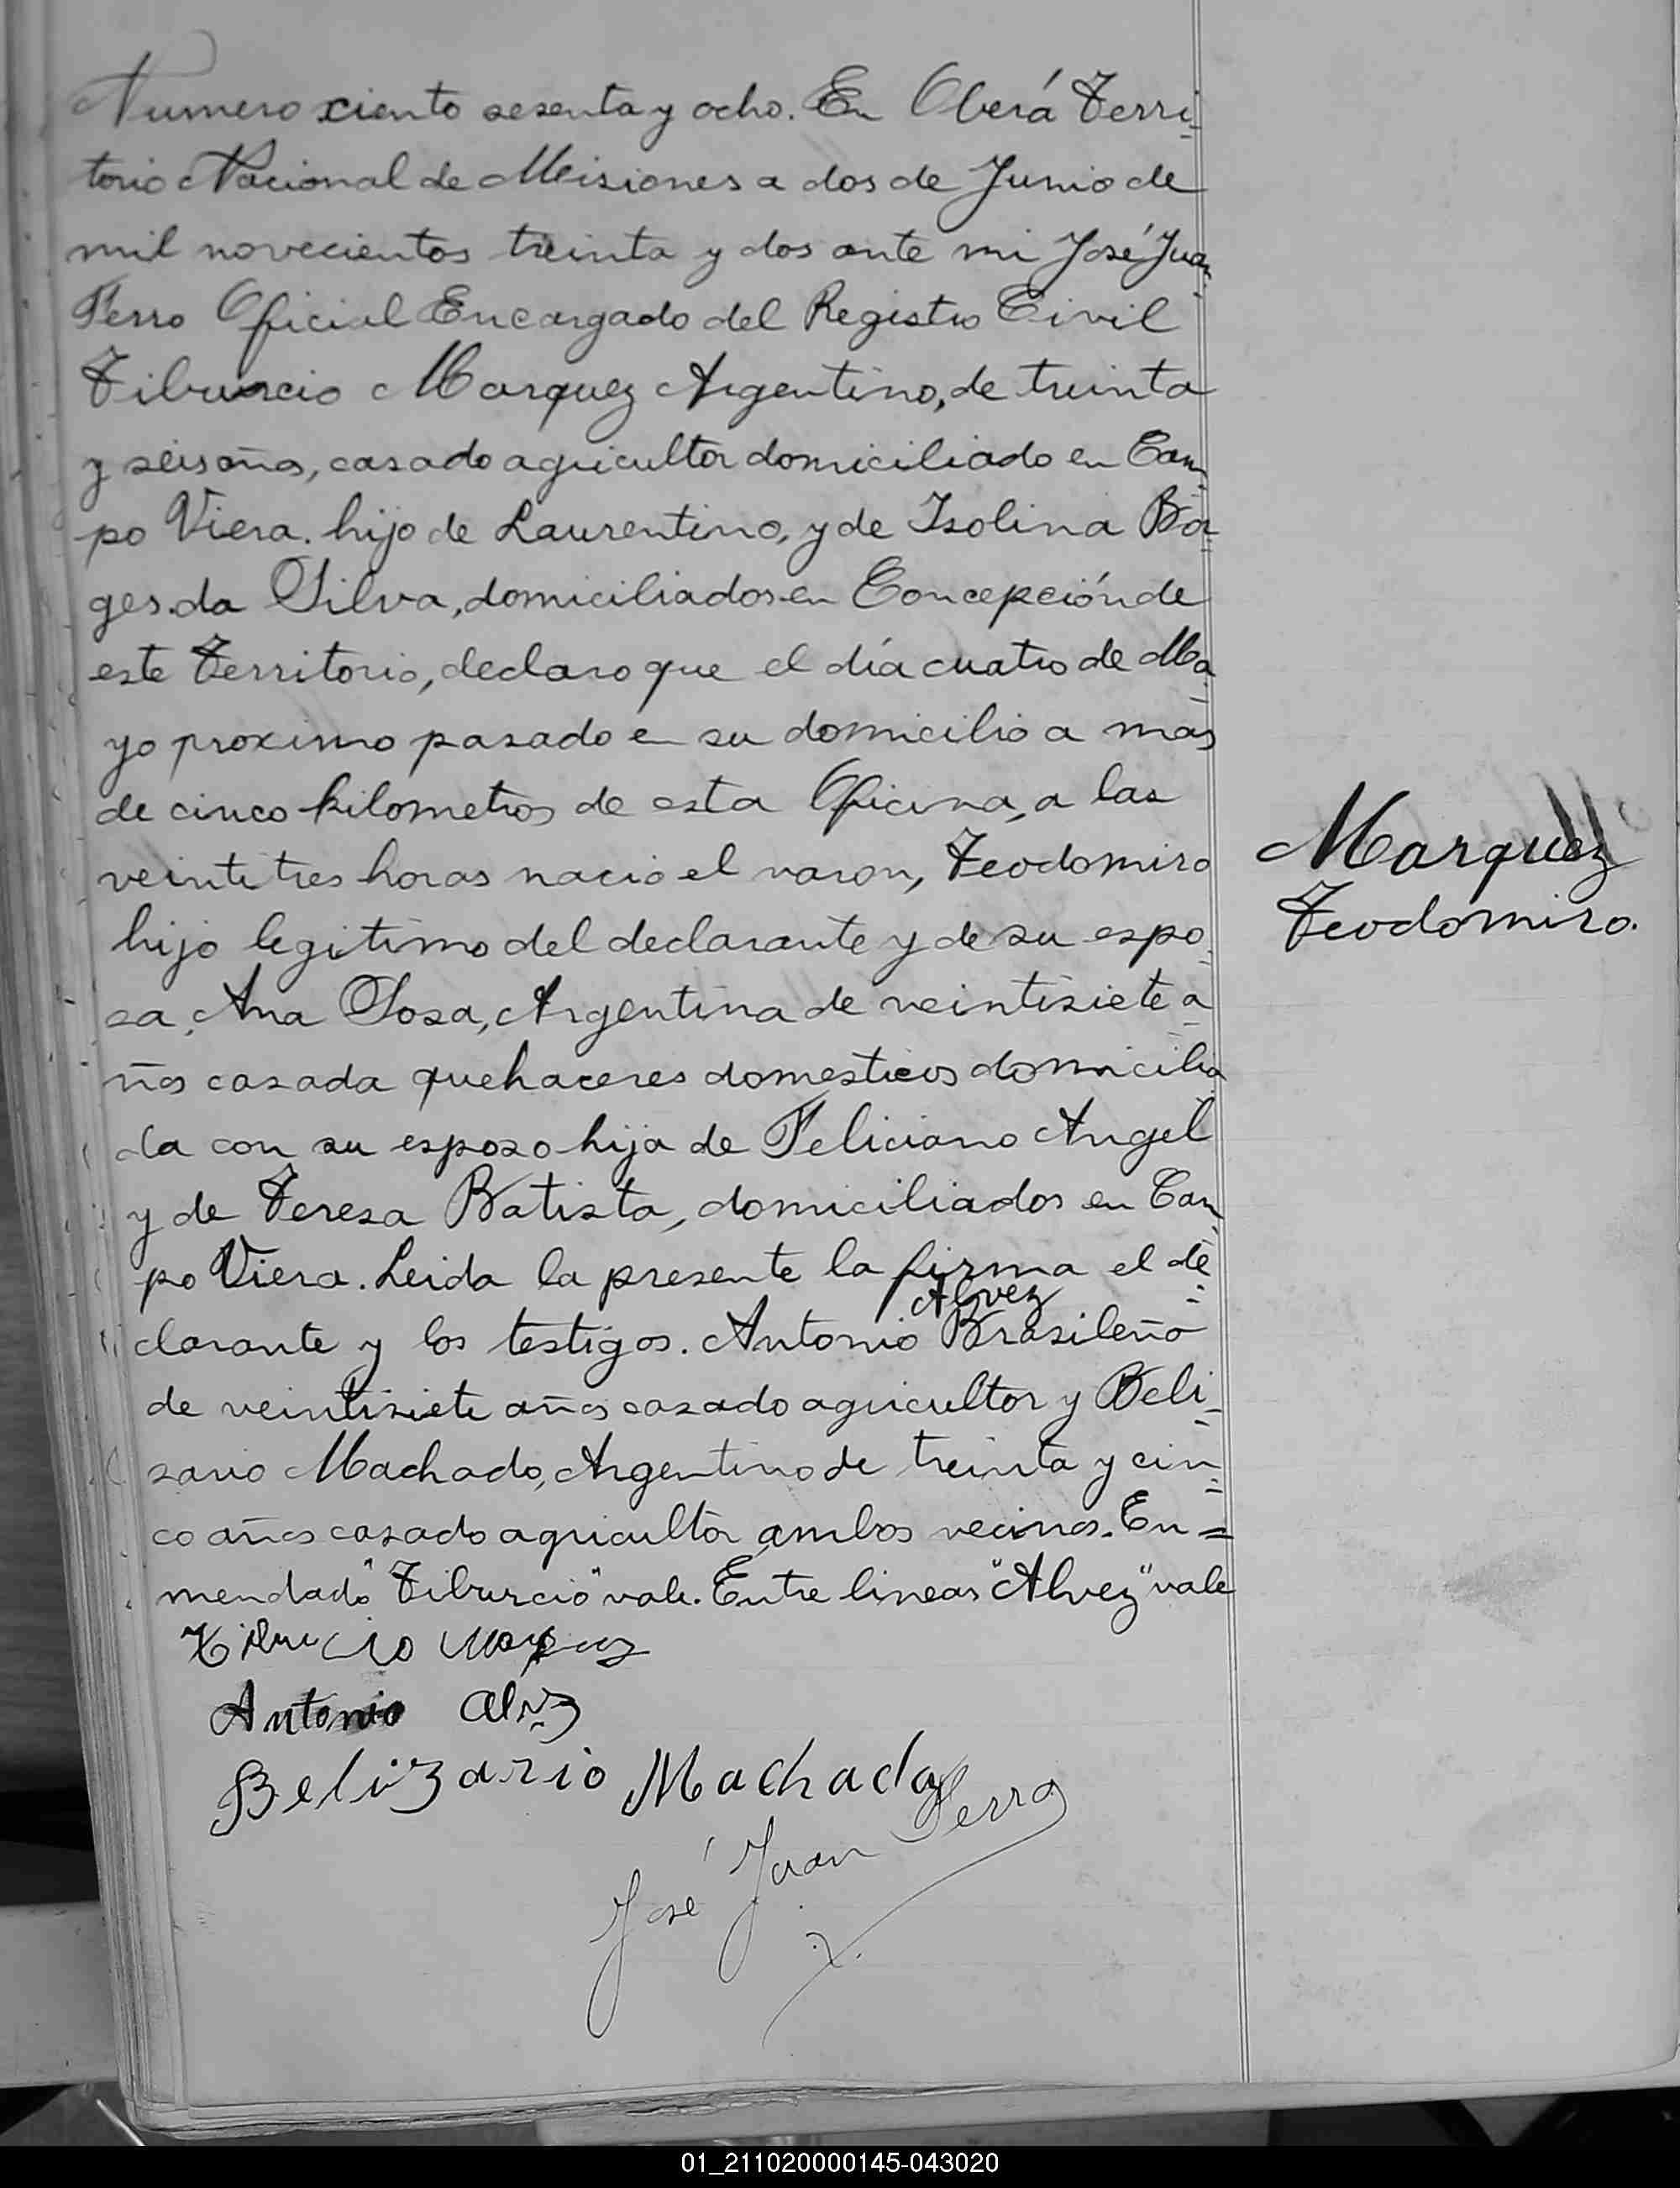 Numero ciento sesenta y ocho. En Oberá Terri-
torio Nacional de Misiones a dos de Junio de
mil novecientos treinta y dos ante mi José Juan
Ferro Oficial Encargado del Registro Civil
Tiburcio Marquez Argentino, de treinta
y seis años, casado agricultor domiciliado en Cam-
po Viera. hijo de Laurentino, y de Isolina Bor-
ges da Silva, domiciliados en Concepción de
este Territorio, declaro que el día cuatro de Ma-
yo proximo pasado en su domicilio a mas
de cinco kilometros de esta Oficina, a las
veinte tres horas nacio el varon, Teodomiro
hijo legitimo del declarante y de su espo-
sa, Ana Sosa, Argentina de veintisiete a-
ños casada quehaceres domesticos domicilia
da con su esposo hija de Feliciano Angel
y de Teresa Batista, domiciliados en Cam-
po Viera. Leida la presente la firma el de-
Alvez
clarante y los testigos. Antonio Brasileño
de veintisiete años casado agricultor y Beli-
sario Machado, Argentino de treinta y cin-
co años casado agricultor ambos vecinos. En=
mendado "Tiburcio" vale. Entre lineas "Alvez" vale
Marquez
Teodomiro.
Tiburcio Marquez
Antonio Alvez
Belizario Machado
José Juan Ferro
01_211020000145-043020